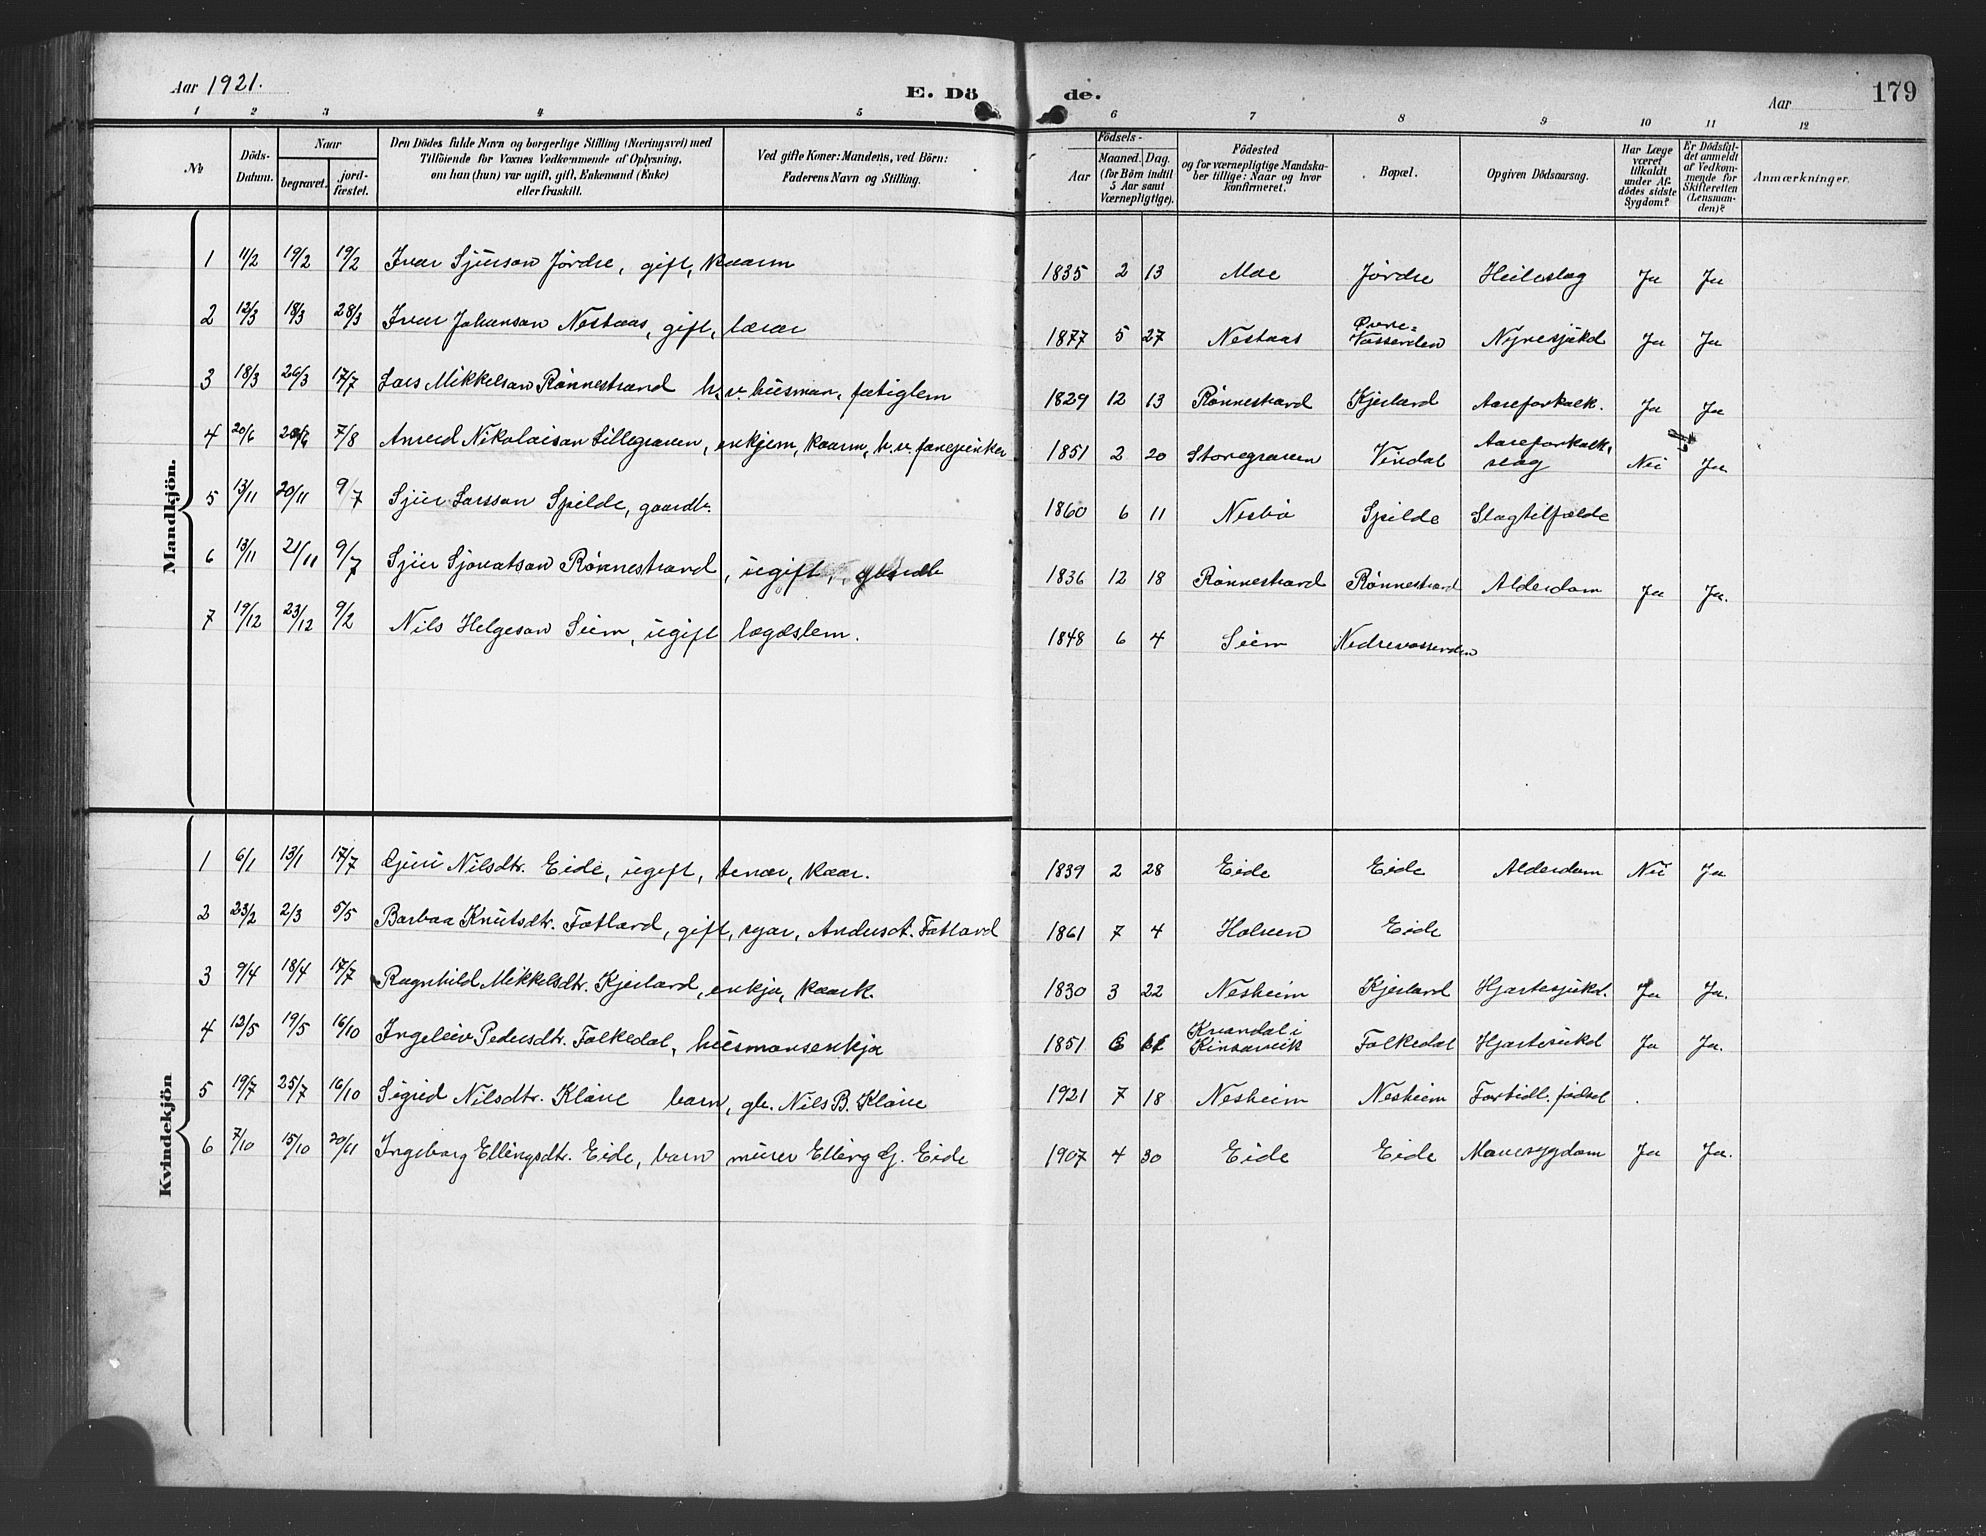 Aar 1921. E. Dö de. Aar 179
1 2 3 4 5 6 7 8 9 10 11 12
№ Döds-Datum. Naar begravet. jord-fæstet. Den Dödes fulde Navn og borgerlige Stilling (Næringsvei) med Tilföiende for Voxnes Vedkommende af Oplysning, om han (hun) var ugift, gift, Enkemand (Enke) eller fraskilt. Ved gifte Koner: Mandens, ved Börn: Faderens Navn og Stilling. Födsels- Aar Maaned. Dag. (for Börn indtil 5 Aar samt Værnepligtige). Födested og for værnepligtige Mandskaber tillige: Naar og hvor konfirmeret. Bopæl. Opgiven Dödsaarsag. Har Læge været tilkaldt under Afdödes sidste Sygdom? Er Dödsfaldet anmeldt af Vedkommende for Skifteretten (Lensmanden)? Anmærkninger.
Mandkjön.
1 11/2 19/2 19/2 Ivar Sjurson Jördre, gift, kaarm 1835 2 13 Mæ Jördre Heileslag Ja Ja
2 12/3 18/3 28/3 Ivar Johanson Nestaas, gift, lærar 1877 5 27 Nestaas Övre-Vassenden Nyresjukd Ja Ja
3 18/3 26/3 17/7 Lars Mikkelson Rönnestrand h. v. husman, fatiglem 1829 12 13 Rönnestrand Kjerland Aareforkalk. Ja Ja
4 20/6 7/8 Anved Nikolaison Lillegraven, enkjem, kaarm, h. v. fanejunker 1851 2 20 Storegraven Vindal Aareforkalk, slag Nei Ja
5 13/11 20/11 9/7 Sjur Larsson Spilde, gaardbr. 1860 6 11 Nesbö Spilde Slagtilfælde
6 13/11 21/11 9/7 Sjur Sjovatson Rönnestrand, ugift, gardb 1836 12 18 Rönnestrand Rönnestrand Alderdom Ja Ja.
7 19/12 23/12 9/2 Nils Helgeson Seim, ugift lægdslem. 1848 6 4 Seim Nedrevassenden
Kvindekjön
1 6/1 13/1 17/7 Guri Nilsdtr. Eide, ugift, tenar, kaar. 1839 2 28 Eide Eide Alderdom Nei Ja
2 23/2 2/3 5/5 Barbaa Knutsdtr. Fatland, gift, syar, Anders A. Fatland 1861 7 4 Holven Eide
3 9/4 18/4 17/7 Ragnhild Mikkelsdtr. Kjerland, enkja, kaark. 1830 3 22 Nesheim Kjerland Hjartesjukd. Ja Ja.
4 12/5 19/5 16/10 Ingeleiv Pedersdtr. Folkedal, husmansenkja 1851 6 Kvandal i Kinsarvik Folkedal Hjartesjukd Ja Ja.
5 19/7 25/7 16/10 Sigrid Nilsdtr. Kløve barn, gb. Nils B. Kløve 1921 7 18 Nesheim Nesheim Fortidl. födsel
6 7/10 15/10 20/11 Ingeborg Ellingsdtr. Eide, barn murer Elling G. Eide 1907 4 30 Eide Eide Mavesygdom Ja Ja.